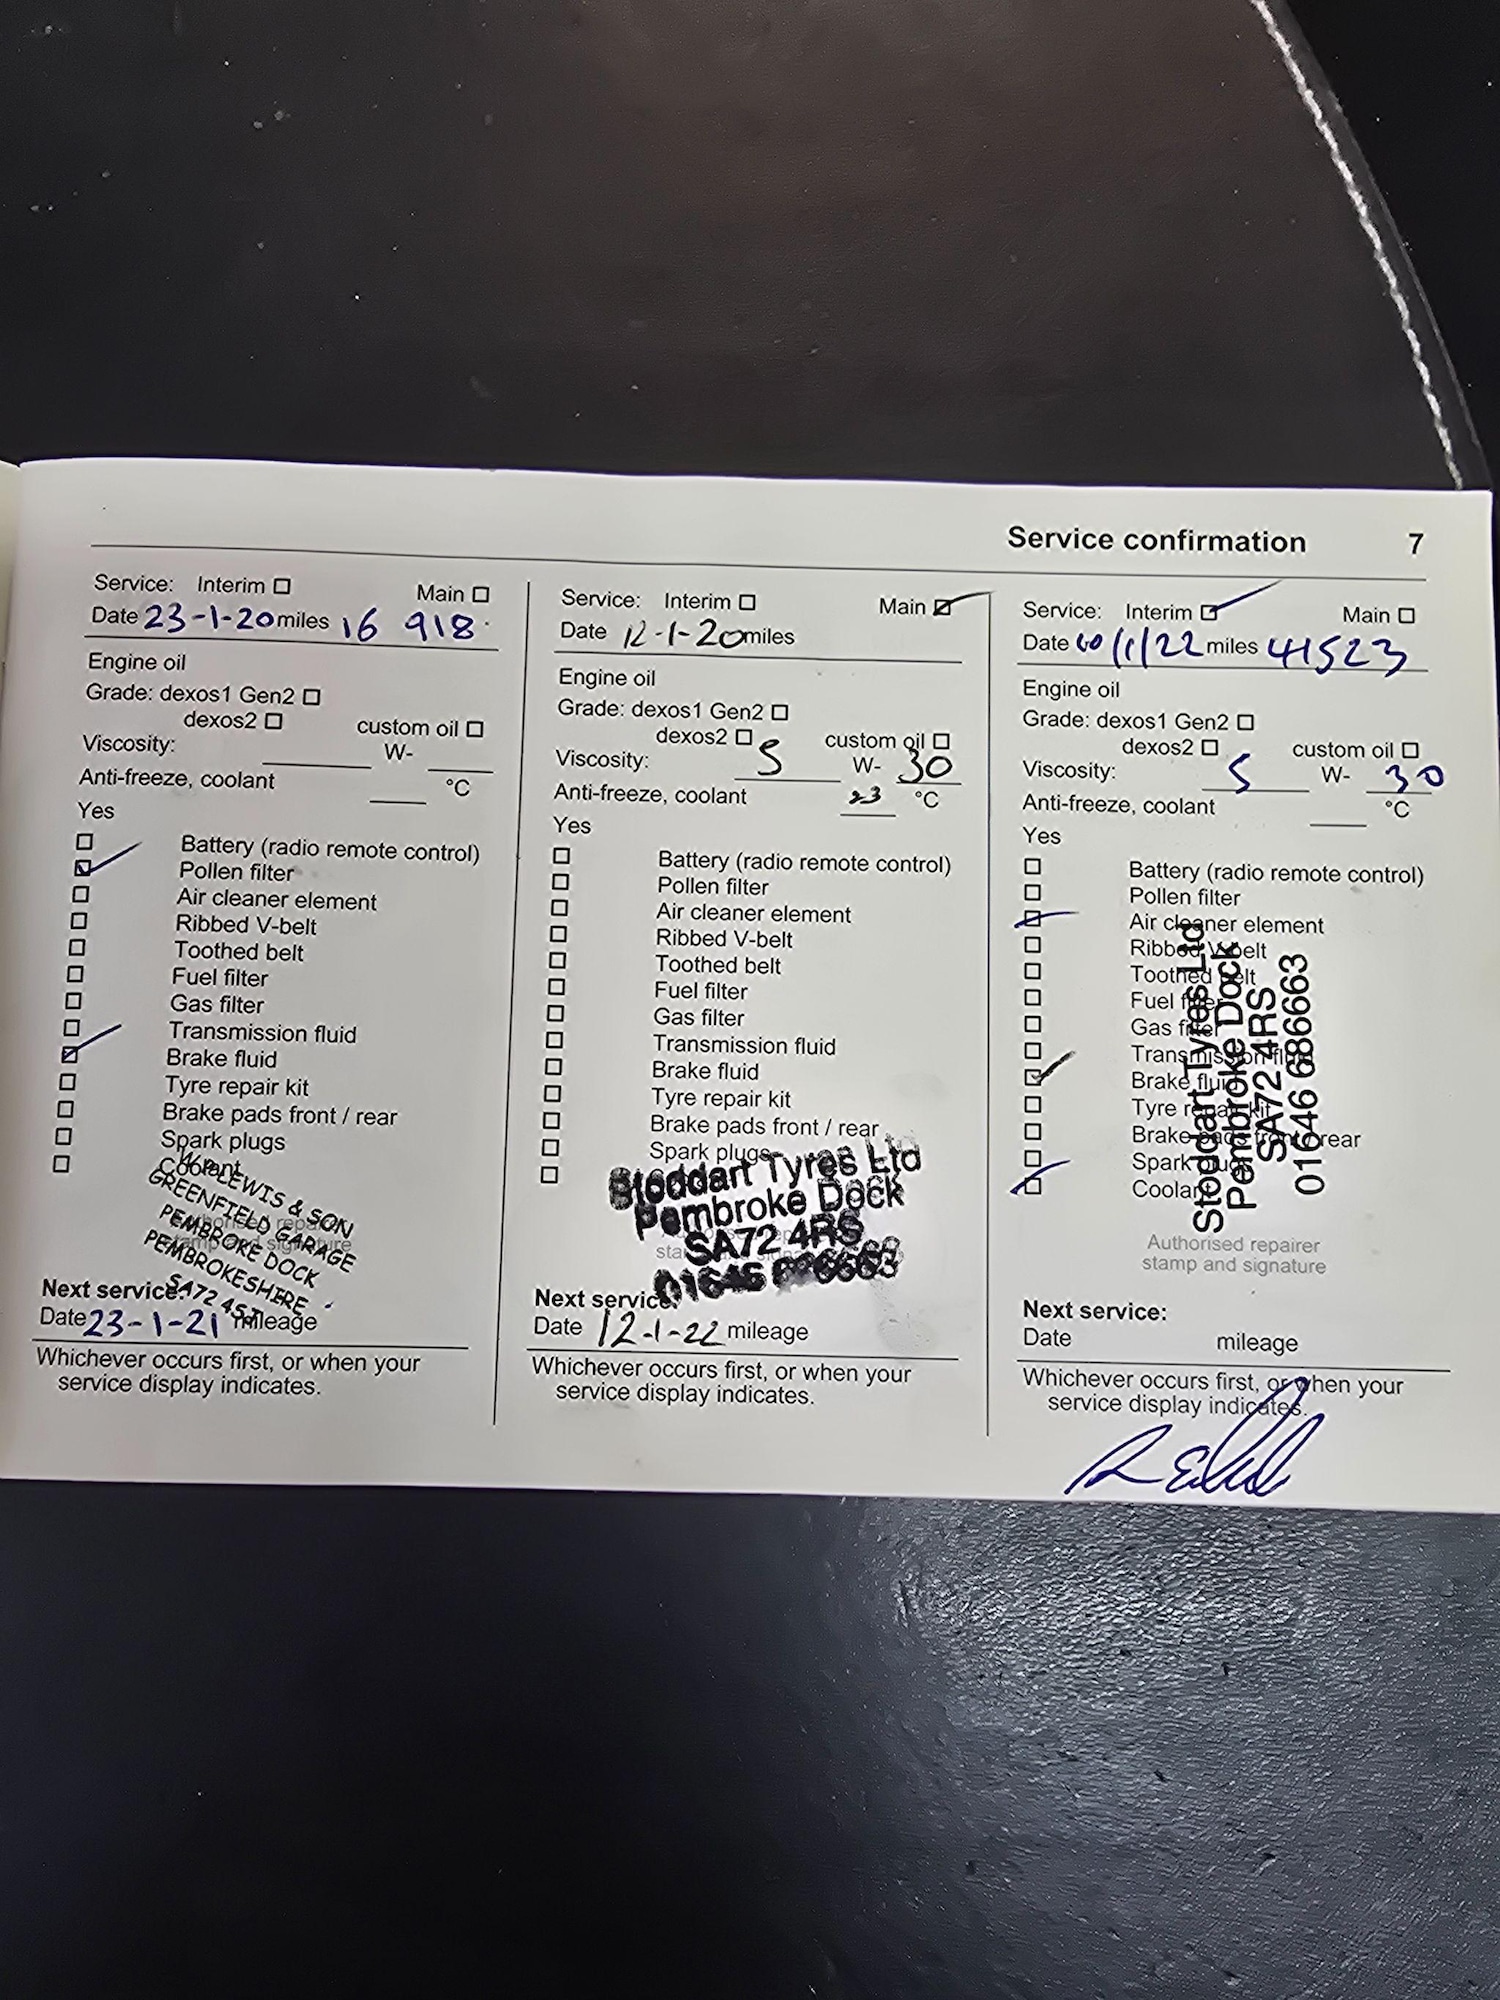 Service confirmation 7
Service: Interim Main
Date 23-1-20 miles 16 918
Engine oil
Grade: dexos1 Gen2
dexos2 custom oil
Viscosity: W-
Anti-freeze, coolant °C
Yes
Battery (radio remote control)
Pollen filter
Air cleaner element
Ribbed V-belt
Toothed belt
Fuel filter
Gas filter
Transmission fluid
Brake fluid
Tyre repair kit
Brake pads front / rear
Spark plugs
Coolant
LEWIS & SON
GREENFIELD GARAGE
PEMBROKE DOCK
PEMBROKESHIRE
SA72
Authorised repairer
stamp and signature
Next service:
Date 23-1-21 mileage
Whichever occurs first, or when your
service display indicates.
Service: Interim Main
Date 12-1-20 miles
Engine oil
Grade: dexos1 Gen2
dexos2 custom oil
Viscosity: 5 W- 30
Anti-freeze, coolant 23 °C
Yes
Battery (radio remote control)
Pollen filter
Air cleaner element
Ribbed V-belt
Toothed belt
Fuel filter
Gas filter
Transmission fluid
Brake fluid
Tyre repair kit
Brake pads front / rear
Spark plugs
Stoddart Tyres Ltd
Pembroke Dock
SA72 4RS
01646 686663
Next service:
Date 12-1-22 mileage
Whichever occurs first, or when your
service display indicates.
Service: Interim Main
Date /1/22 miles 41523
Engine oil
Grade: dexos1 Gen2
dexos2 custom oil
Viscosity: 5 W- 30
Anti-freeze, coolant °C
Yes
Battery (radio remote control)
Pollen filter
Air cleaner element
Ribbed V-belt
Toothed belt
Fuel filter
Gas filter
Transmission fluid
Brake fluid
Tyre repair kit
Brake pads front / rear
Spark plugs
Coolant
Stoddart Tyres Ltd
Pembroke Dock
SA72 4RS
01646 686663
Authorised repairer
stamp and signature
Next service:
Date mileage
Whichever occurs first, or when your
service display indicates.